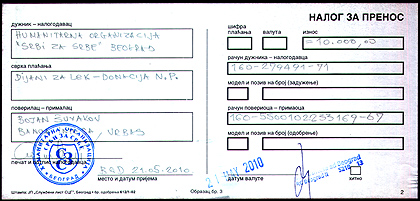 НАЛОГ ЗА ПРЕНОС
дужник – налогодавац
HUMANITARNA ORGANIZACIJA
"SRBI ZA SRBE" BEOGRAD
сврха плаћања
DIJANI ZA LEK - DONACIJA N.P.
поверилац – прималац
BOJAN SUVAKOV
VRBAS
печат и
BGD 21.05.2010
место и датум пријема
шифра
плаћања
валута
износ
=10.000,00
рачун дужника – налогодавца
160-279491-71
модел и позив на број (задужење)
рачун повериоца – примаоца
160-5500102253169-67
модел и позив на број (одобрење)
21 MAY 2010
датум валуте
хитно
Образац бр. 3
2